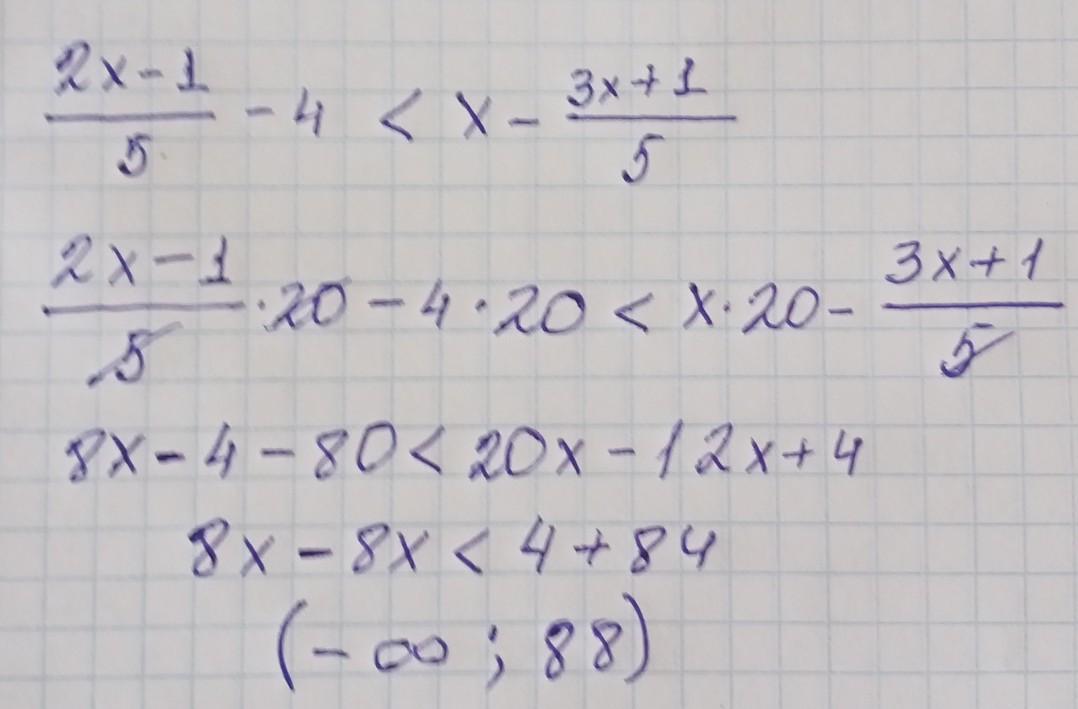 (2x-1)/5 - 4 < x - (3x+1)/5
(2x-1)/5 · 20 - 4 · 20 < x · 20 - (3x+1)/5
8x - 4 - 80 < 20x - 12x + 4
8x - 8x < 4 + 84
(-∞ ; 88)